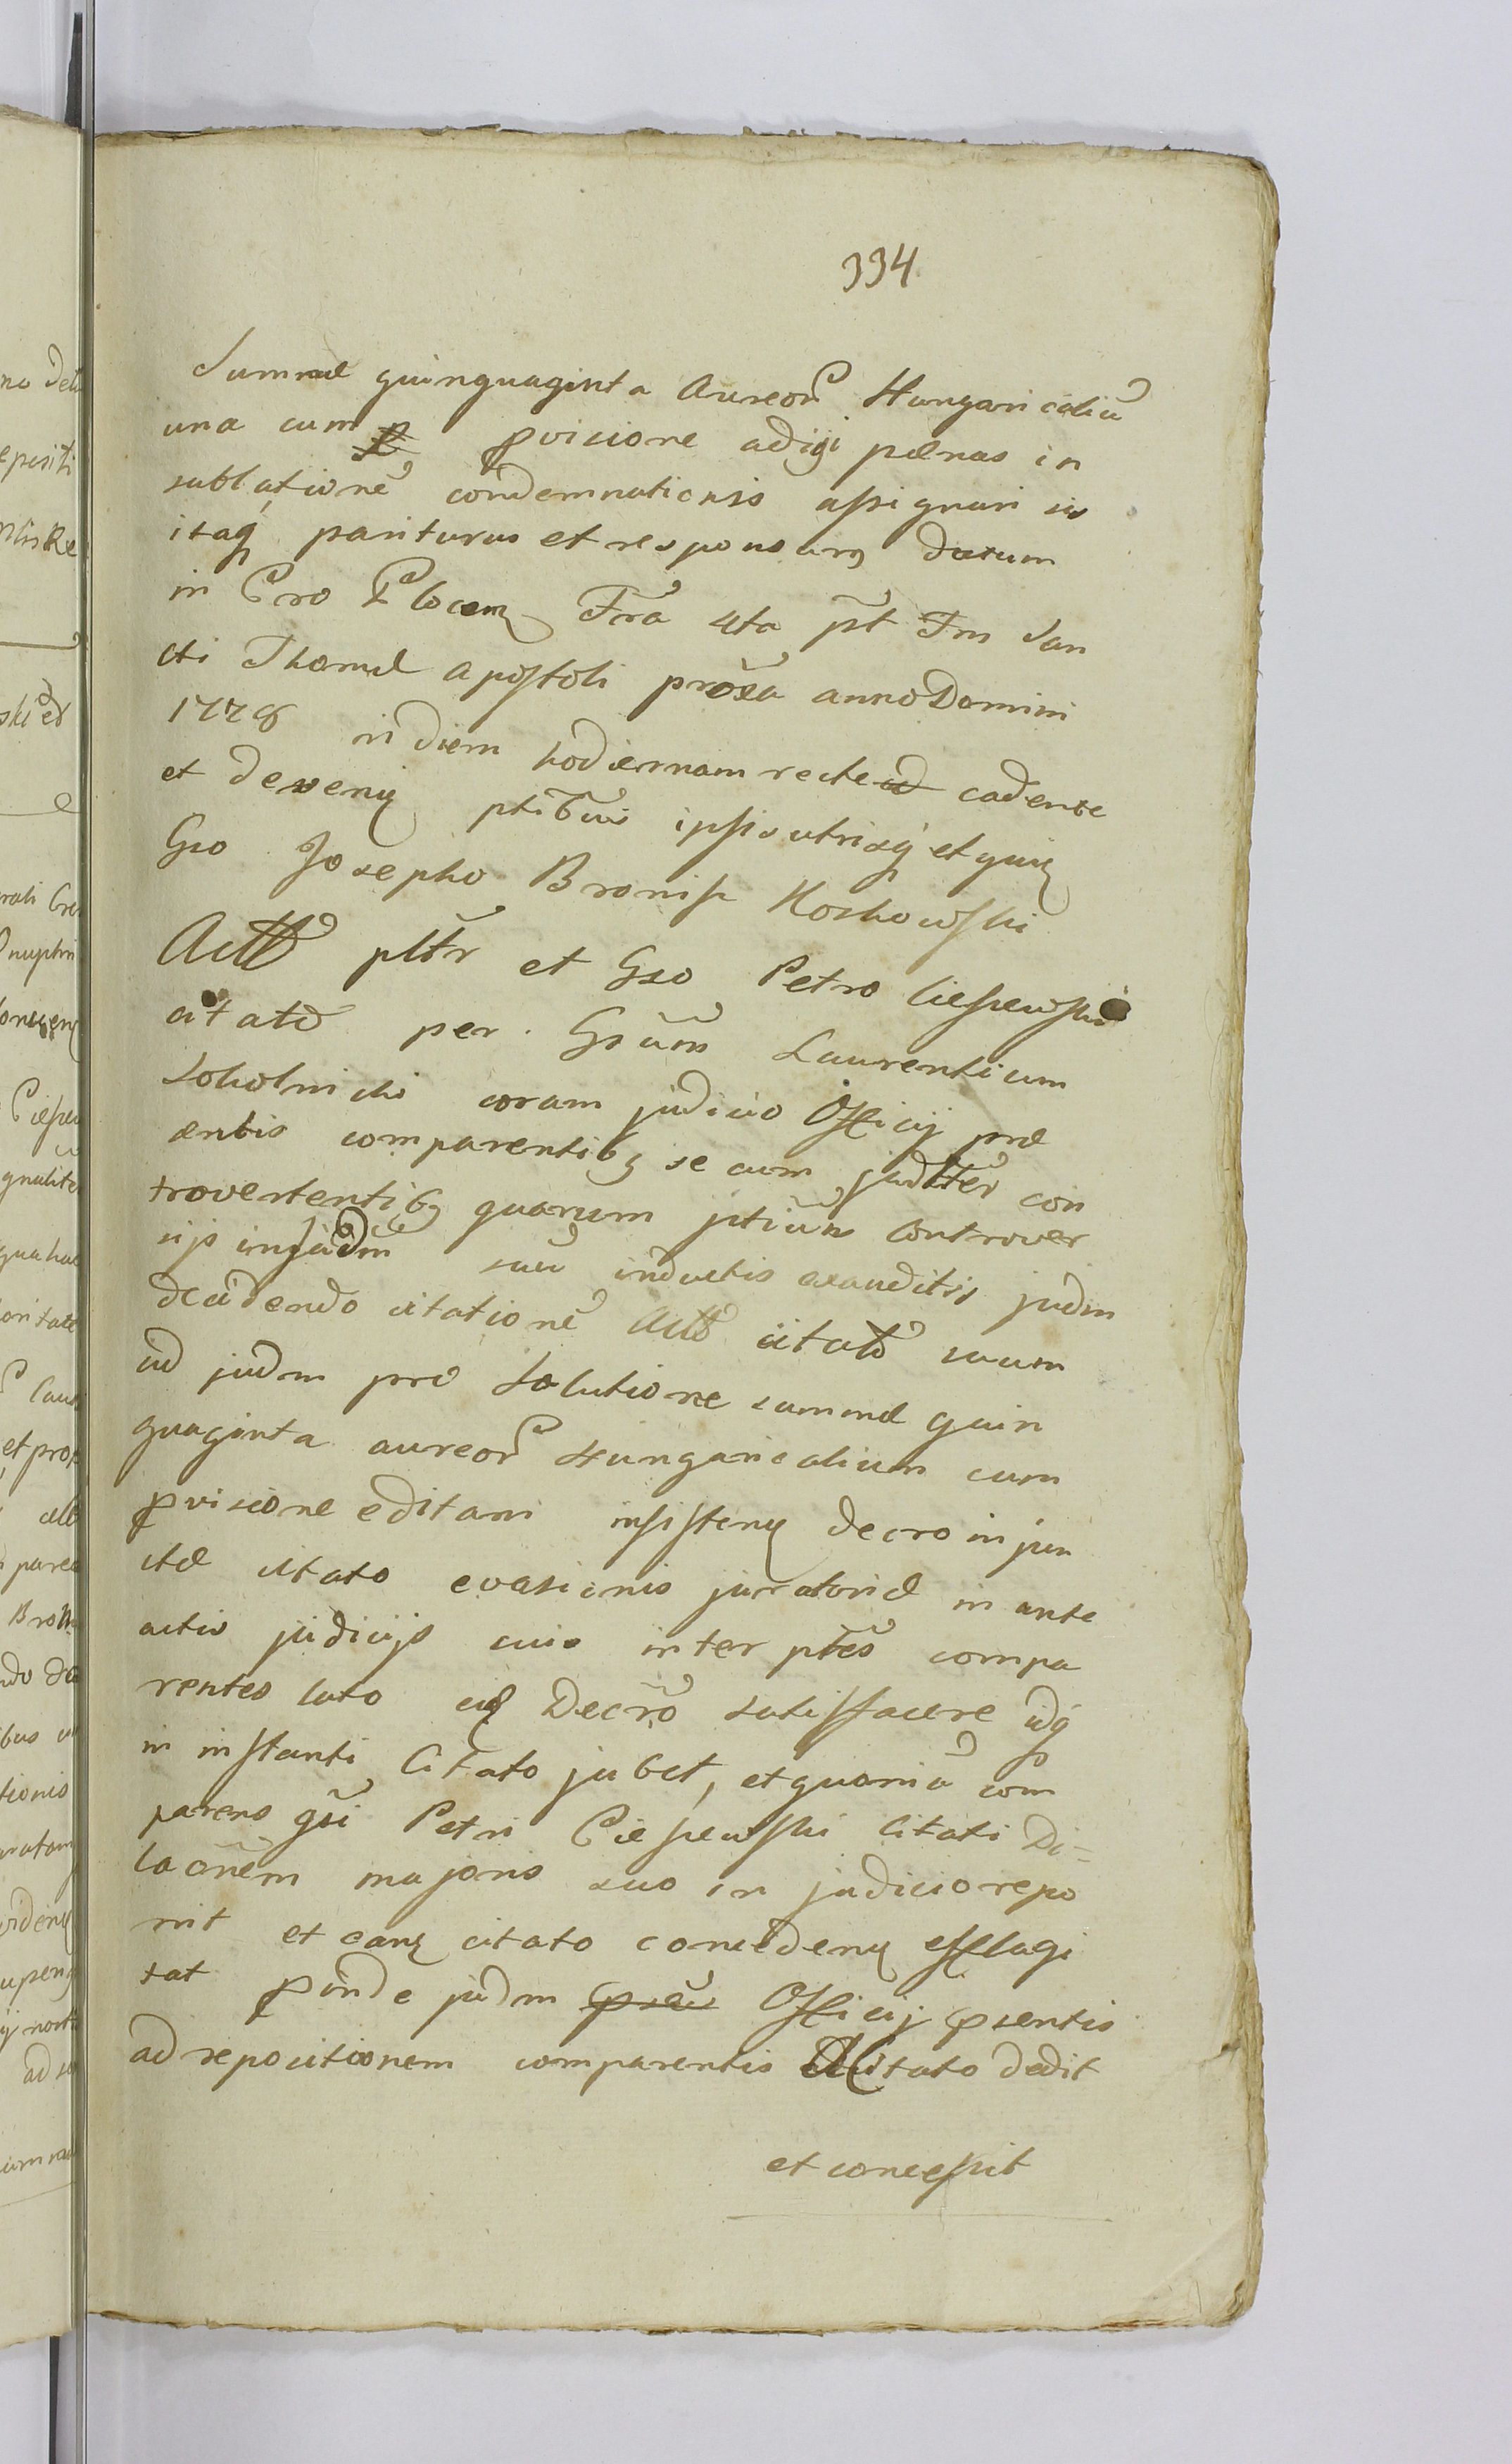 334
Summæ quinquaginta Aureor Hungaricaliũ
una cum pvisione adigi pænas in
sublationẽ condemnationis assignari sis
itaq pariturus et responsurus Datum
in Cro Plocen Fra 4ta pst Fm San
cti Thomæ Apostoli proxa anno Domini
1778 in diem hodiernam recte cadente
et deveni ptibus ipsis utrisq et quis
Gso Josepho Bronisz Koskowski
Actt pltr et Gso Petro Cieszewski
citato per Gsum Laurentium
Sokolnicki coram judicio Officij præ
sentis comparentibs se cum juditer con
trovertentibs quarum ptium controver
sijs in judm suũ inductis exauditis judm
decidendo citationẽ Actt citato suum
ad judm pro solutione summæ quin
quaginta aureor Hungaricalium cum
pvisione editam insisten decro injun
ctæ citato evasionis juratoriæ in ante
actis judicijs suis inter ptes compa
rentes lato eid Decro satisfacere idq
in instanti Citato jubet, et quoniã com
parens gsi Petri Cieszewski Citati Di=
lacõnem majoris suo in judicio repo
nit et eam citato conceden efflagi
tat pinde judm Officij psentis
ad repositionem comparentis Citato dedit
et concessit